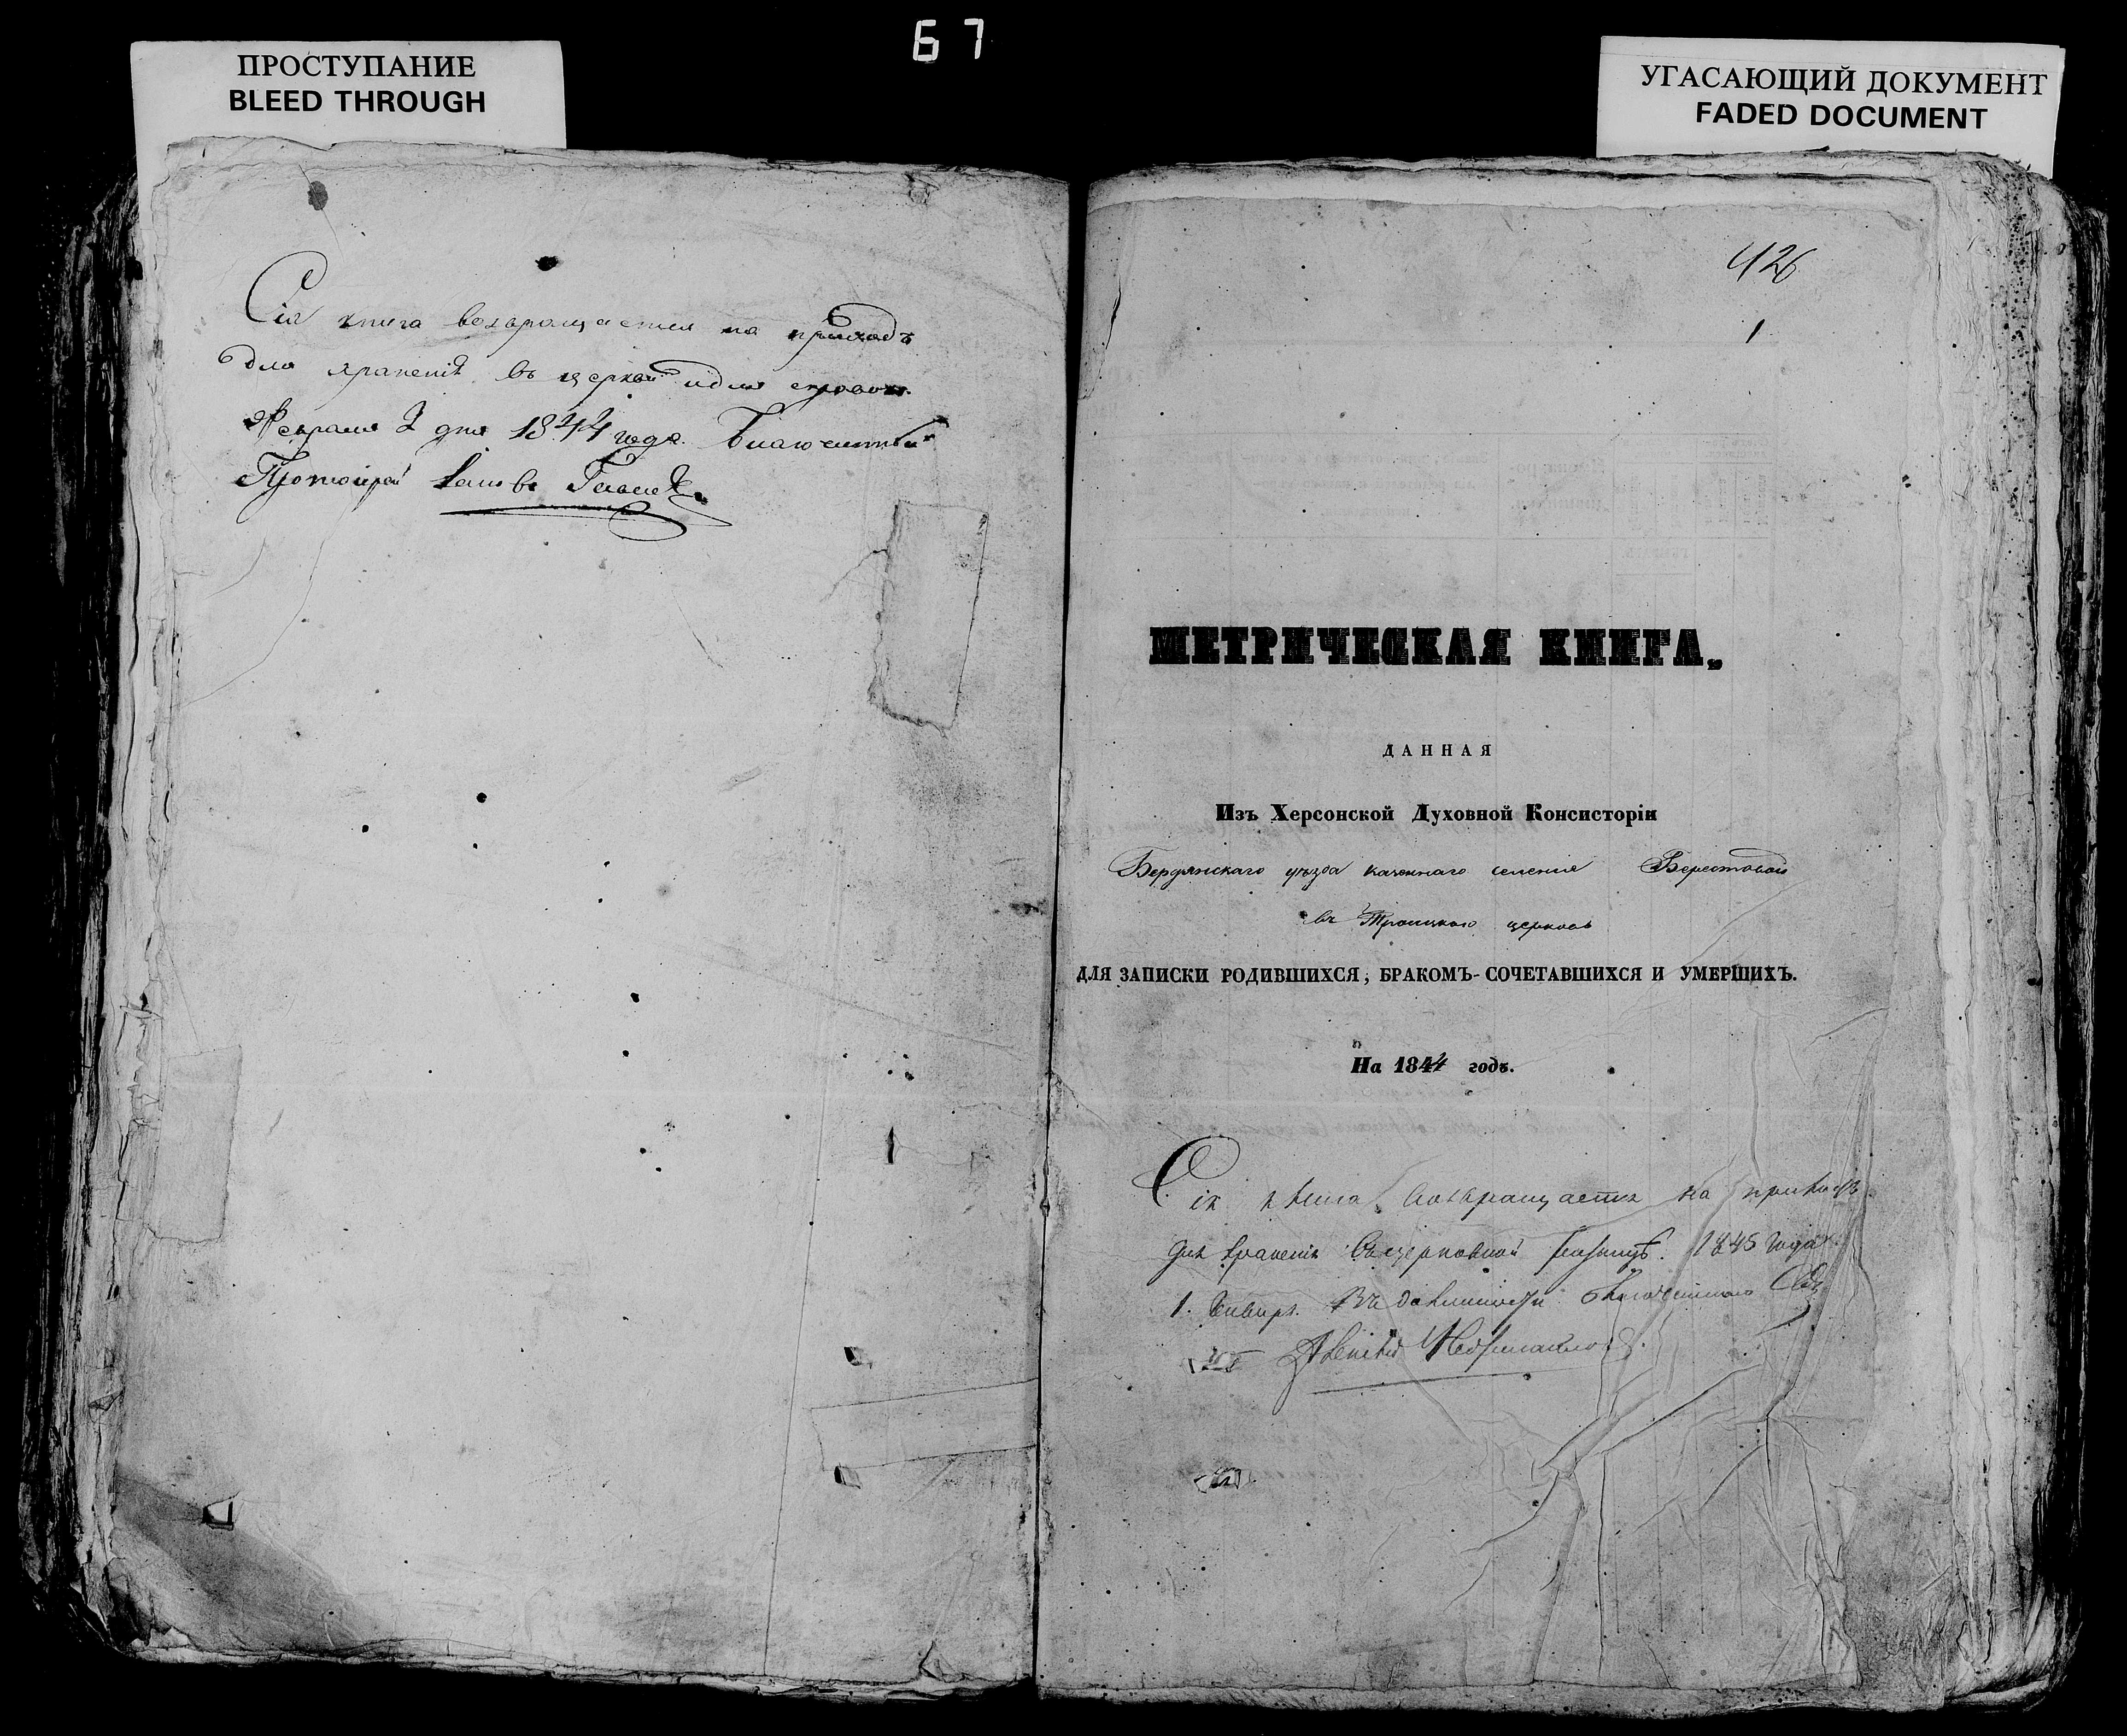 67
ПРОСТУПАНИЕ
BLEED THROUGH
УГАСАЮЩИЙ ДОКУМЕНТ
FADED DOCUMENT
Сія книга возвращается на приходъ
для храненія въ церкви и для справок.
Февраля 2 дня 1844 года. Благочинный
Протоіерей
426
1
МЕТРИЧЕСКАЯ КНИГА,
ДАННАЯ
Изъ Херсонской Духовной Консисторіи
Бердянскаго уѣзда казеннаго селенія Берестоваго
въ Троицкую церковь
ДЛЯ ЗАПИСКИ РОДИВШИХСЯ, БРАКОМЪ-СОЧЕТАВШИХСЯ И УМЕРШИХЪ.
На 1844 годъ.
Сія книга возвращается на приходъ
для храненія въ церковной ризницѣ. 1845 года
1. Января. Въ должности благочиннаго